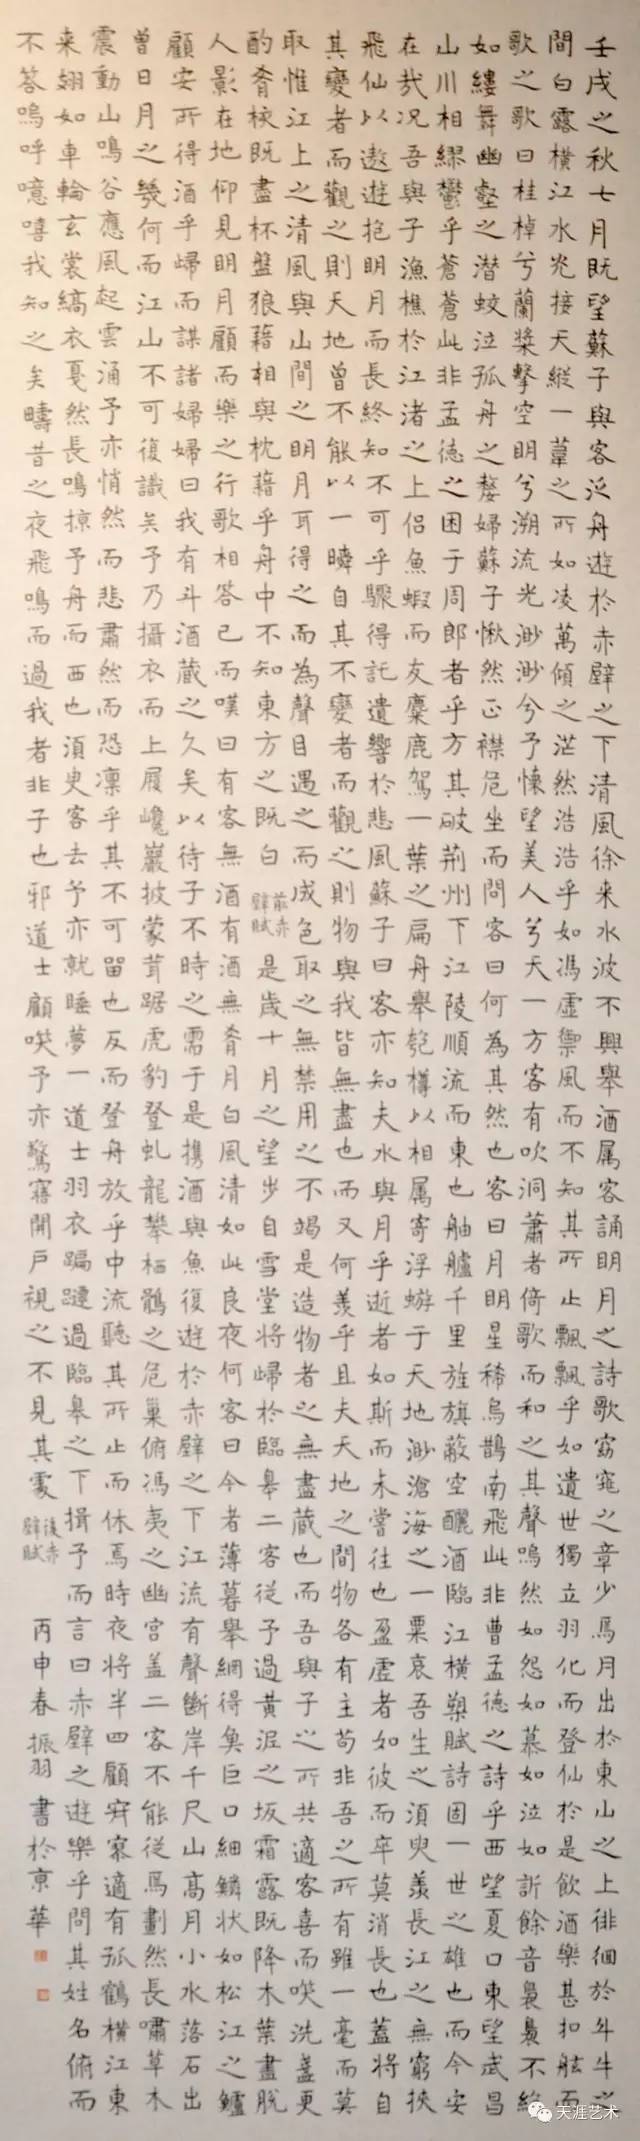 壬戌之秋七月既望蘇子與客泛舟遊於赤壁之下清風徐来水波不興舉酒属客誦明月之詩歌窈窕之章少焉月出於東山之上徘徊於斗牛之
間白露横江水光接天縱一葦之所如凌萬傾之茫然浩浩乎如馮虛禦風而不知其所止飄飄乎如遺世獨立羽化而登仙於是飲酒樂甚扣舷而
歌之歌曰桂棹兮蘭槳擊空明兮溯流光渺渺兮予懷望美人兮天一方客有吹洞蕭者倚歌而和之其聲嗚然如怨如慕如泣如訴餘音裊裊不絶
如縷舞幽壑之潜蛟泣孤舟之嫠婦蘇子愀然正襟危坐而問客曰何為其然也客曰月明星稀烏鵲南飛此非曹孟德之詩乎西望夏口東望武昌
山川相繆鬱乎蒼蒼此非孟德之困于周郎者乎方其破荆州下江陵順流而東也舳艫千里旌旗蔽空釃酒臨江横槊賦詩固一世之雄也而今安
在哉况吾與子漁樵於江渚之上侣魚蝦而友麋鹿駕一葉之扁舟舉匏樽以相属寄浮蝣于天地渺滄海之一粟哀吾生之須臾羡長江之無窮挾
飛仙以遨遊抱明月而長終知不可乎驟得託遺響於悲風蘇子曰客亦知夫水與月乎逝者如斯而未嘗往也盈虛者如彼而卒莫消長也蓋將自
其變者而觀之則天地曾不能以一瞬自其不變者而觀之則物與我皆無盡也而又何羡乎且夫天地之間物各有主苟非吾之所有雖一毫而莫
取惟江上之清風與山間之明月耳得之而為聲目遇之而成色取之無禁用之不竭是造物者之無盡蔵也而吾與子之所共適客喜而笑洗盞更
酌肴核既盡杯盤狼藉相與枕藉乎舟中不知東方之既白 前赤壁賦 是歲十月之望步自雪堂將歸於臨皋二客從予過黄泥之坂霜露既降木葉盡脱
人影在地仰見明月顧而樂之行歌相答已而嘆曰有客無酒有酒無肴月白風清如此良夜何客曰今者薄暮舉網得魚巨口細鱗状如松江之鱸
顧安所得酒乎歸而謀諸婦婦曰我有斗酒蔵之久矣以待子不時之需于是携酒與魚復遊於赤壁之下江流有聲斷岸千尺山高月小水落石出
曾日月之幾何而江山不可復識矣予乃攝衣而上履巉巖披蒙茸踞虎豹登虬龍攀栖鶻之危巢俯馮夷之幽宫盖二客不能從焉劃然長嘯草木
震動山鳴谷應風起雲涌予亦悄然而悲肅然而恐凛乎其不可留也反而登舟放乎中流聽其所止而休焉時夜將半四顧寂寥適有孤鶴横江東
来翅如車輪玄裳縞衣戛然長鳴掠予舟而西也須臾客去予亦就睡夢一道士羽衣蹁躚過臨皋之下揖予而言曰赤壁之遊樂乎問其姓名俯而
不答嗚呼噫嘻我知之矣疇昔之夜飛鳴而過我者非子也邪道士顧笑予亦驚寤開户視之不見其處 後赤壁賦 丙申春振羽書於京華
天涯艺术